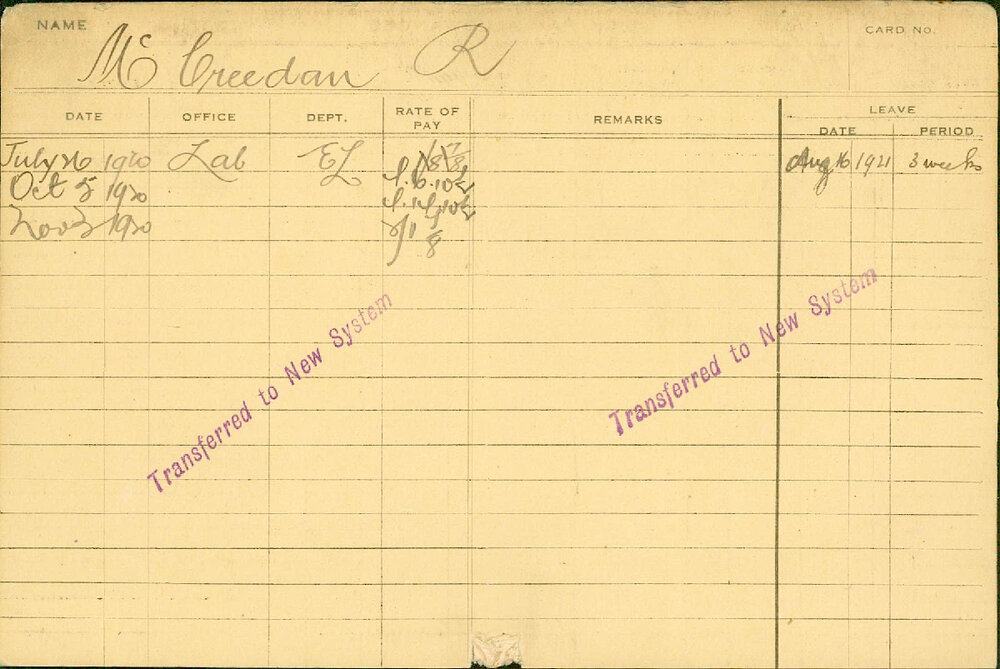 NAME
CARD NO.
Mc Creedan R
DATE OFFICE DEPT. RATE OF PAY REMARKS LEAVE
DATE PERIOD
July 26 1920 Lab EL Aug 16 1921 3 weeks
Oct 5 1920
Nov 1920
Transferred to New System
Transferred to New System